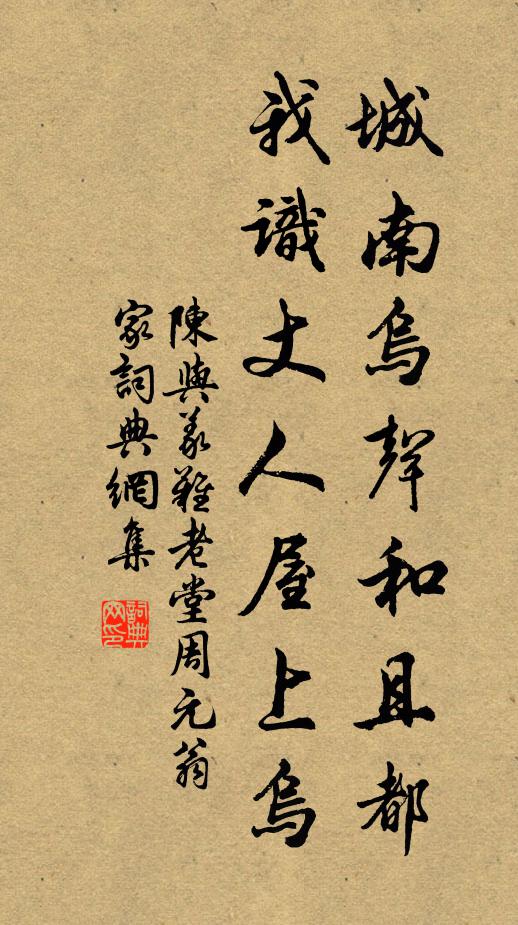 城南烏聲和且都
我識丈人屋上烏
陳與義難老堂周元翁
家詞典網集
詞典
网印